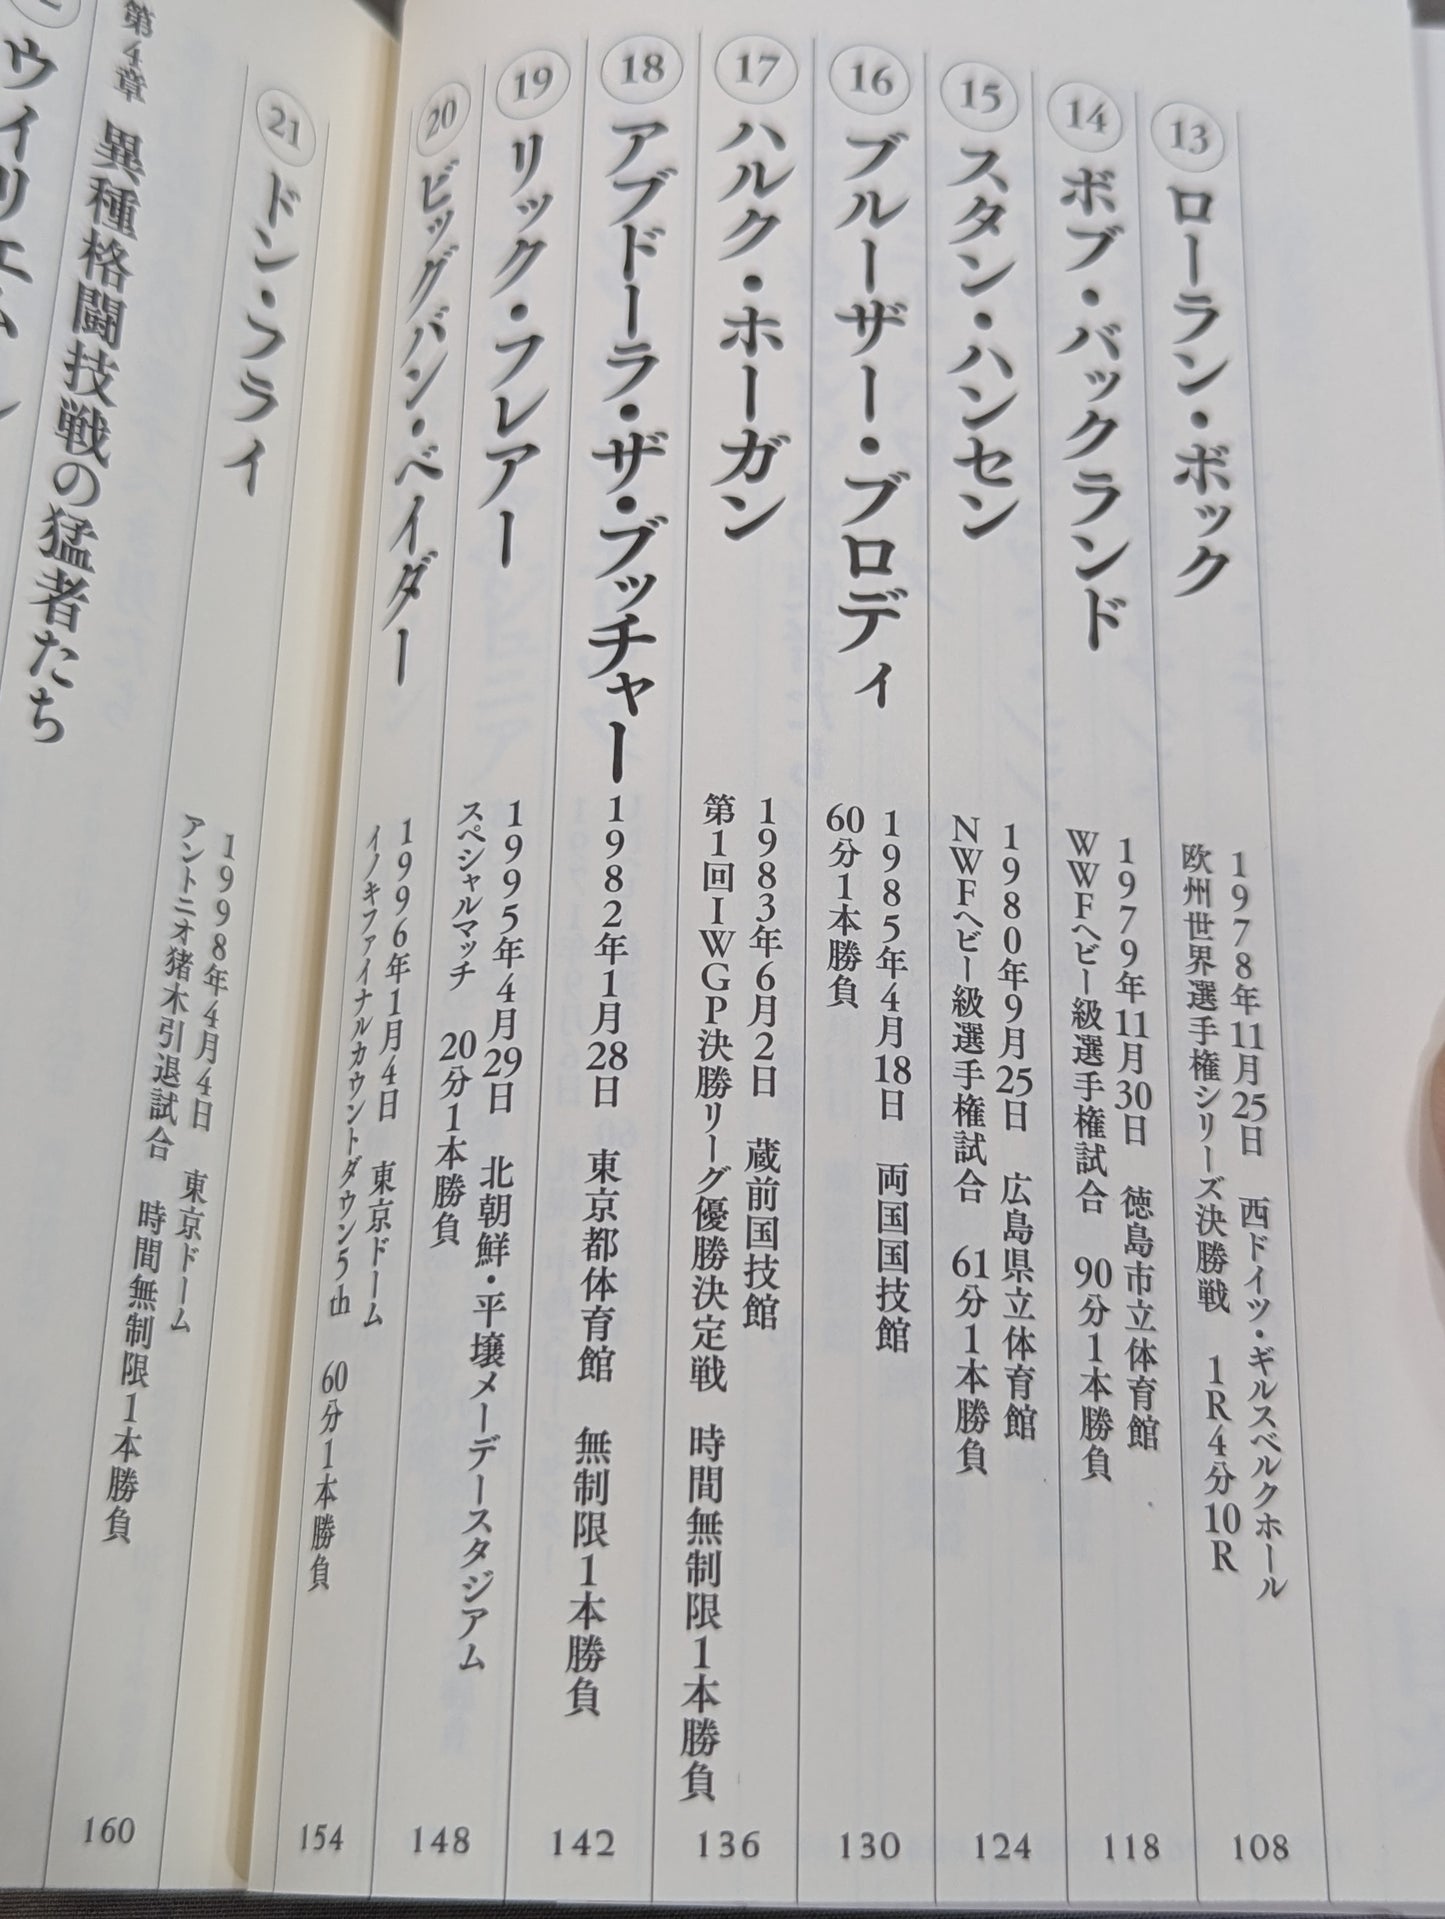 13
ローラン・ボック
1978年11月25日　西ドイツ・ギルスベルクホール
欧州世界選手権シリーズ決勝戦　1R4分10R
108
14
ボブ・バックランド
1979年11月30日　徳島市立体育館
WWFヘビー級選手権試合　90分1本勝負
118
15
スタン・ハンセン
1980年9月25日　広島県立体育館
NWFヘビー級選手権試合　61分1本勝負
124
16
ブルーザー・ブロディ
1985年4月18日　両国国技館
60分1本勝負
130
17
ハルク・ホーガン
1983年6月2日　蔵前国技館
第1回IWGP決勝リーグ優勝決定戦　時間無制限1本勝負
136
18
アブドーラ・ザ・ブッチャー
1982年1月28日　東京都体育館　無制限1本勝負
142
19
リック・フレアー
1995年4月29日　北朝鮮・平壌メーデースタジアム
スペシャルマッチ　20分1本勝負
148
20
ビッグバン・ベイダー
1996年1月4日　東京ドーム
イノキファイナルカウントダウン5th　60分1本勝負
154
21
ドン・フライ
1998年4月4日　東京ドーム
アントニオ猪木引退試合　時間無制限1本勝負
160
第4章　異種格闘技戦の猛者たち
ウイリエム